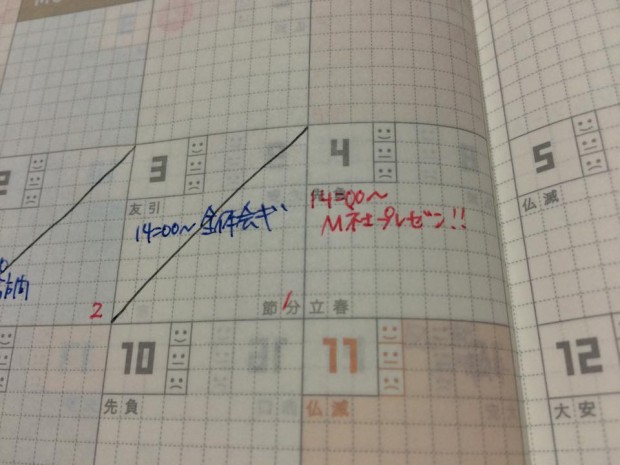 2
3
友引
14:00~ 全体会ギ
4
14:00~
M社プレゼン!!
5
仏滅
訪問
2
節分
1
立春
10
先負
11
仏滅
12
大安